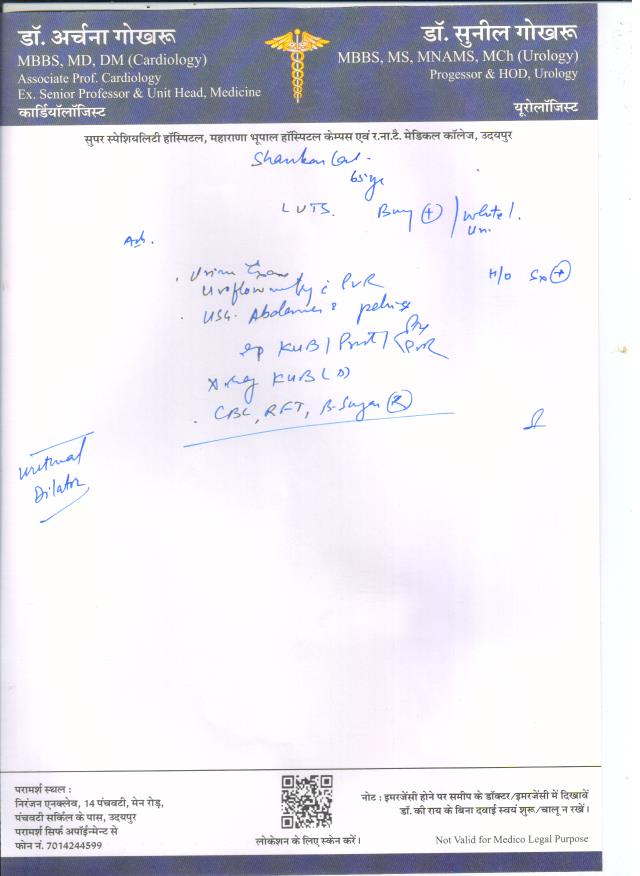 डॉ. अर्चना गोखरू
MBBS, MD, DM (Cardiology)
Associate Prof. Cardiology
Ex. Senior Professor & Unit Head, Medicine
कार्डियॉलॉजिस्ट
डॉ. सुनील गोखरू
MBBS, MS, MNAMS, MCh (Urology)
Progessor & HOD, Urology
यूरोलॉजिस्ट
सुपर स्पेशियलिटी हॉस्पिटल, महाराणा भूपाल हॉस्पिटल केम्पस एवं र.ना.टै. मेडिकल कॉलेज, उदयपुर
Shankar Lal
65 yr
LUTS. (+) / White
Adv.
Urine Exam
Uroflowmetry c PVR
H/O Sx (+)
USG. Abdomen & pelvis
KUB / Prost / PVR
X-ray KUB
CBC, RFT, B. Sugar (R)
Urethral
Dilator
परामर्श स्थल :
निरंजन एनक्लेव, 14 पंचवटी, मेन रोड़,
पंचवटी सर्किल के पास, उदयपुर
परामर्श सिर्फ अपॉईन्मेन्ट से
फोन नं. 7014244599
लोकेशन के लिए स्केन करें।
नोट : इमरजेंसी होने पर समीप के डॉक्टर/इमरजेंसी में दिखावें
डॉ. की राय के बिना दवाई स्वयं शुरू/चालू न रखें।
Not Valid for Medico Legal Purpose